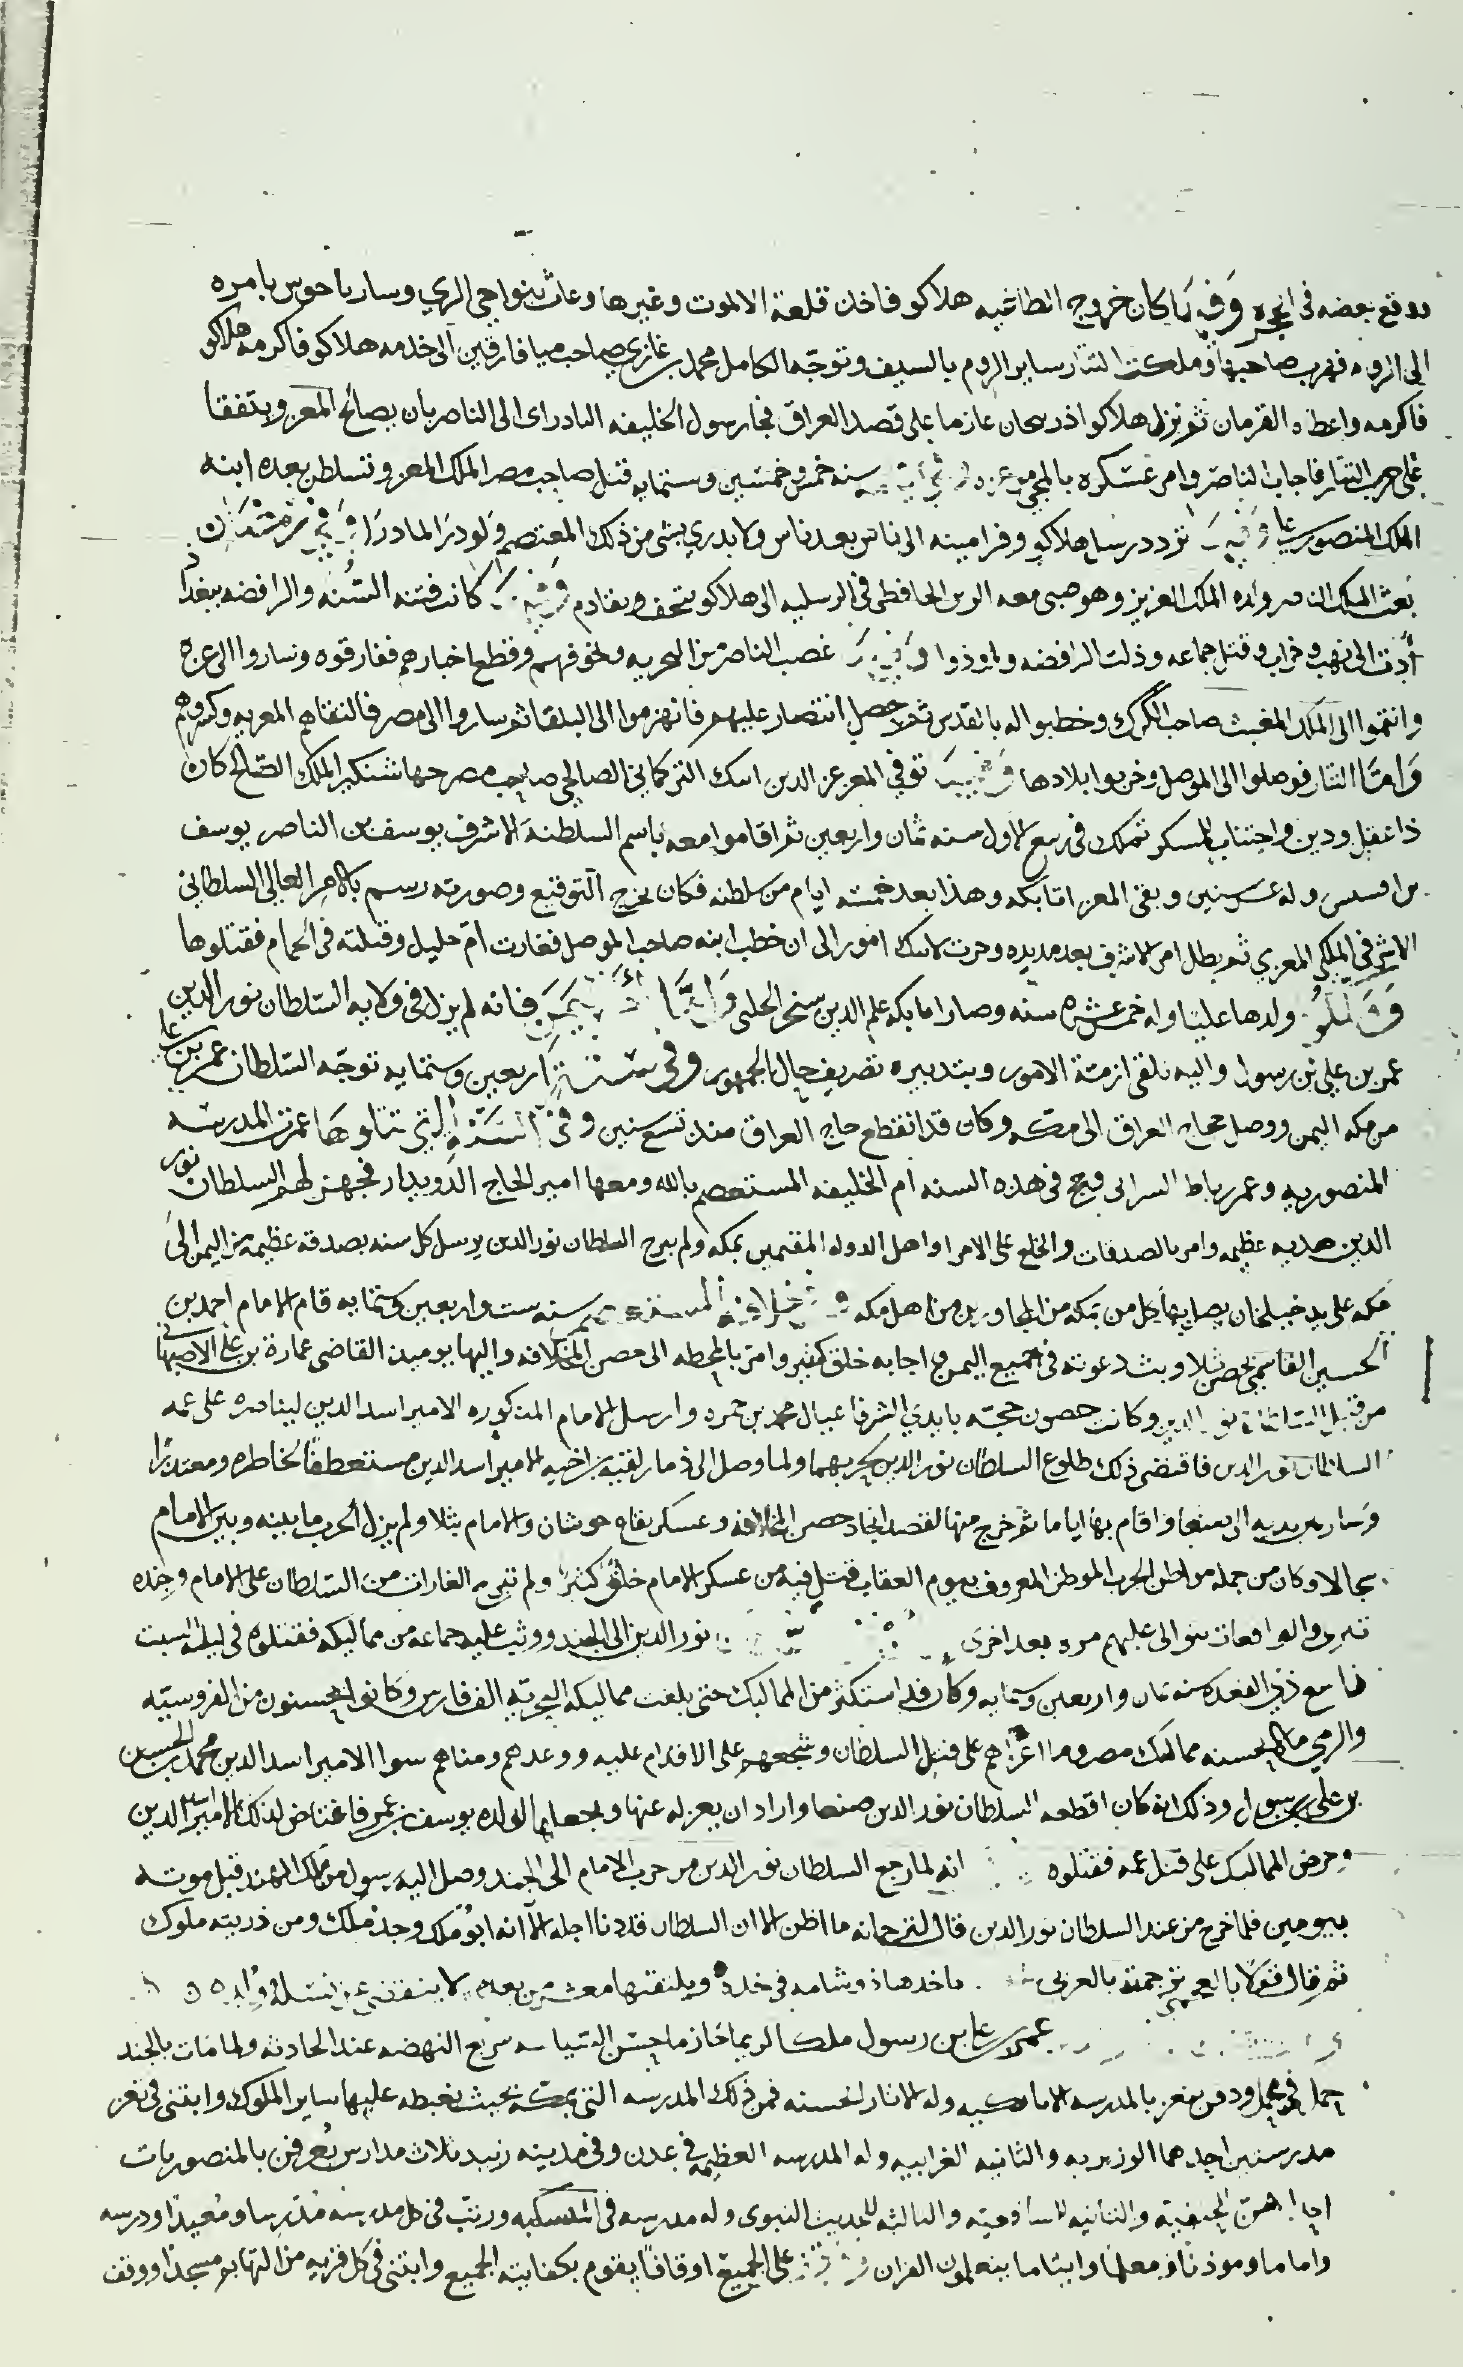 ووقع بعضه في البحر وفيها كان خروج الطاغيه هلاكو فاخذ قلعة الالموت وغيرها وعاث بنواحي الري وسار باحوس بامره
الى الروم فهرب صاحبها وملكت التتار ساير الروم بالسيف وتوجه الكامل محمد بن غازي صاحب ميافارقين الى خدمه هلاكو فاكرمه هلاكو
فاكرمه واعطاه الفرمان ثم نزل هلاكو اذربيجان عازما على قصد العراق فجا رسول الخليفه البادراى الى الناصر بان يصالح المعز ويتفقا
على حرب التتار فاجاب الناصر وامر عسكره بالمجي من غزه سنه خمس وخمسين وستمايه قتل صاحب مصر الملك المعز وتسلطن بعده ابنه
الملك المنصور على وفيها تردد رسل هلاكو وفرامينه الى ناس بعد ناس ولا يدري بشي من ذلك المعتصم ولو درا لما درا وفي رمضان
بعث الملك الناصر ولده الملك العزيز وهو صبى معه الزين الحافظى في الرسليه الى هلاكو بتحف وتقادم وفيها كانت فتنه السنه والرافضه ببغداد
أدت الى نهب وخراب وقتل جماعه وذلت الرافضه واوذوا وفيها غضب الناصر من البحريه وتخوفهم وقطع اخبازهم ففارقوه وساروا الى غزه
وانتموا الى الملك المغيث صاحب الكرك وخطبوا له بالقدس ثم حصل انتصار عليهم فانهزموا الى البلقا ثم ساروا الى مصر فالتقاهم المعزيه وكسروهم
وامتا التتار فوصلوا الى الموصل وخربوا بلادها وفيها توفي المعز عز الدين ايبك التركماني الصالحي صاحب مصر جهاشنكير الملك الصالح كان
ذا عقل ودين واجتناب للمسكر تملك في ربيع الاول سنه ثمان واربعين ثم اقاموا معه باسم السلطنة الاشرف يوسف بن الناصر يوسف
بن اقسيس وله عشر سنين وبقى المعز اتابكه وهذا بعد خمسه ايام من سلطنه فكان يخرج التوقيع وصورته رسم بالامر العالي السلطاني
الاشرفي الملكي المعزي ثم بطل امر الاشرف بعد مديده وجرت لايبك امور الى ان خطب ابنه صاحب الموصل فغارت ام خليل وقتلته في الحمام فقتلوها
وملكوا ولدها عليا وله خمس عشره سنه وصار اتابكه علم الدين سنجر الحلبي وامتا اليمن فانه لم يزل في ولايه السلطان نور الدين
عمر بن علي بن رسول واليه تلقى ازمة الامور وبتدبيره تصريف حال الجمهور وفي سنة اربعين وستمايه توجه السلطان عمر بن على
من مكه اليمن ووصل حجاج العراق الى مكه وكان قد انقطع حاج العراق منذ تسع سنين وفي السنة التي تتلوها عمرت المدرسه
المنصوريه وعمر رباط السرابى وحج في هذه السنه ام الخليفه المستعصم بالله ومعها امير الحاج الدويدار فجهز لهم السلطان نور
الدين هديه عظيمه وامر بالصدقات والخلع على الامرا واهل الدوله المقيمين بمكه ولم يبرح السلطان نور الدين يرسل كل سنه بصدقه عظيمة من اليمن الى
مكه على يد خيلخان يصل بها كل من بمكه من المجاورين من اهل مكه وفي خلافة المستعصم سنه ست واربعين وستمايه قام الامام احمد بن
الحسين القاسمي بحصن ثلا وبث دعوته في جميع اليمن واجابه خلق كثير وامر بالمحطه الى حصن المخلافه واليها يوميذ القاضى عمارة بن علي الاصبهاني
من قبل السلطان نور الدين وكانت حصون حجه بايدي الشرفا عيال محمد بن حمزه وارسل الامام المذكور الى الامير اسد الدين ليناصره على عمه
السلطان نور الدين فاقتضى ذلك طلوع السلطان نور الدين لحربهما ولما وصل الى ذمار لقيه بن اخيه الامير اسد الدين مستعطفا لخاطره ومعتذرا
وسار بين يديه الى صنعا واقام بها اياما ثم خرج منها لقصد انجاد حصن المخلافه وعسكر بقاع حوشان والامام بثلا ولم يزل الحرب ما بينه وبين الامام
سجالا وكان من جمله مواطن الحرب الموطن المعروف بيوم العقاب قتل فيه من عسكر الامام خلق كثير ولم تبرح الغارات من السلطان على الامام وجنده
تترى والواقعات تتوالى عليهم مره بعد اخرى نور الدين الى الجند ووثب عليه جماعه من مماليكه فقتلوه في ليله السبت
تاسع ذي القعده سنه ثمان واربعين وستمايه وكان قد استكثر من المماليك حتى بلغت مماليكه البحريه الف فارس وكانوا يحسنون من الفروسيه
والرمي ما لا يحسنه مماليك مصر وما اغراهم على قتل السلطان وشجعهم على الاقدام عليه ووعدهم ومناهم سوا الامير اسد الدين محمد بن الحسين
بن علي بن رسول وذلك انه كان اقطعه السلطان نور الدين صنعا واراد ان يعزله عنها ويجعلها لولده يوسف بن عمر فاغتاض لذلك الامير اسد الدين
وحرض المماليك على قتل عمه فقتلوه انه لما رجع السلطان نور الدين من حرب الامام الى الجند وصل اليه رسول من ملك الهند قبل موته
بيومين فلما خرج من عند السلطان نور الدين قال لترجمانه ما اظن الا ان السلطان قد دنا اجله الا انه ابو ملك وجد ملك ومن ذريته ملوك
ثم قال قولا بالعجمي ترجمته بالعربي ياخذها ذو شامه في خده ويلتقيها معشر من بعده لا ينقضي عن نسله وولده
عمر بن على بن رسول ملكا كريما حازما حسن السياسه سريع النهضه عند الحادثه ولما مات بالجند
حمل في محمل ودفن بتعز بالمدرسه الاتابكيه وله الاثار الحسنه فمن ذلك المدرسه التى بمكه بحيث يغبطه عليها ساير الملوك وابتنى في تعز
مدرستين احدهما الوزيريه والثانيه الغرابيه وله المدرسه العظيمه في عدن وفي مدينه زبيد ثلاث مدارس تعرفن بالمنصوريات
احداهن الحنفية والثانيه للشافعية والثالثه للحديث النبوى وله مدرسه في المنسكيه ورتب في كل مدرسه مدرسا ومعيدا ودرسه
واماما وموذنا ومعلما وايتاما يتعلمون القران ووقف على الجميع اوقافا يقوم بكفايته الجميع وابتنى في كل قريه من التهايم مسجدا ووقف